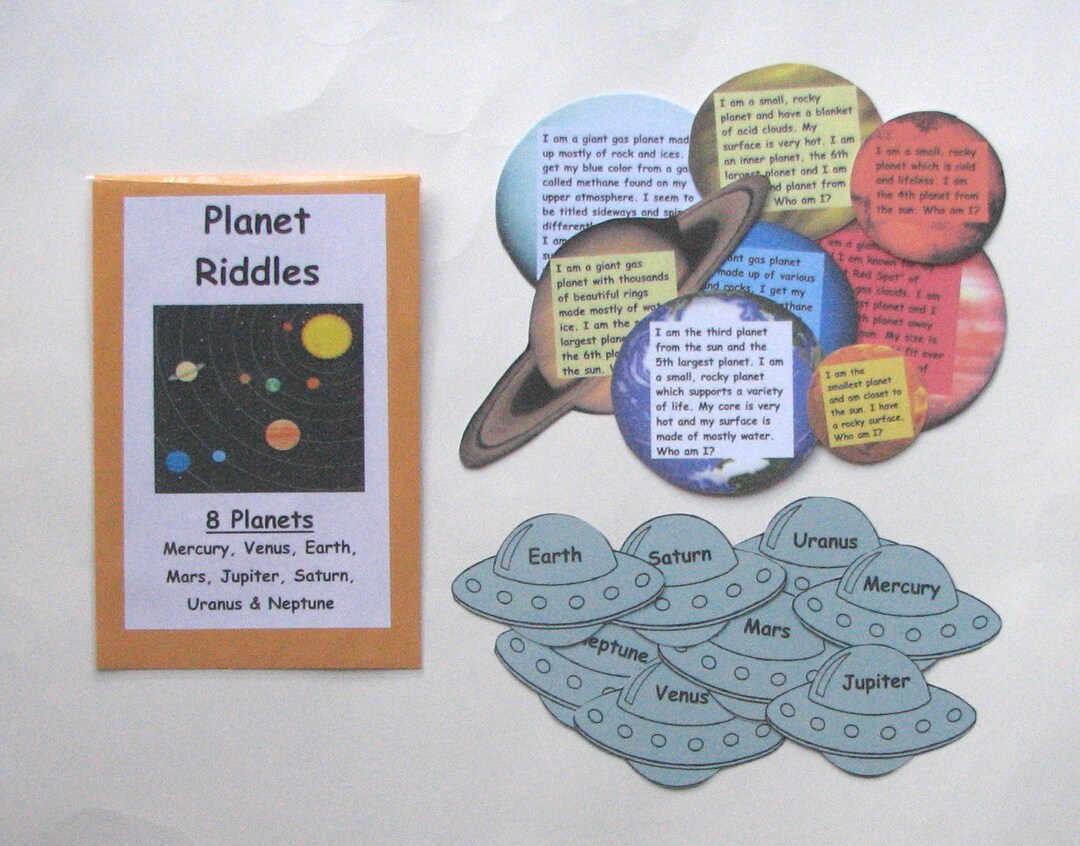 Planet
Riddles
8 Planets
Mercury, Venus, Earth,
Mars, Jupiter, Saturn,
Uranus & Neptune
I am a giant gas planet mad
up mostly of rock and ices.
get my blue color from a ga
called methane found on my
upper atmosphere. I seem to
be titled sideways and spi
different
I am
I am a small, rocky
planet and have a blanket
of acid clouds. My
surface is very hot. I am
an inner planet, the 6th
largest planet and I am
nd planet from
Who am I?
I am a small, rocky
planet which is cold
and lifeless. I am
the 4th planet from
the sun. Who am I?
I am a giant gas
planet with thousands
of beautiful rings
made mostly of wat
ice. I am the
largest plane
the 6th pl
the sun.
ant gas planet
made up of various
and rocks. I get my
ethane
am a gian
I am known
t Red Spot" of
gas clouds. I am
st planet and I
th planet away
My size is
fit over
of
I am the third planet
from the sun and the
5th largest planet. I am
a small, rocky planet
which supports a variety
of life. My core is very
hot and my surface is
made of mostly water.
Who am I?
I am the
smallest planet
and am closet to
the sun. I have
a rocky surface.
Who am I?
Earth
Saturn
Uranus
Mercury
eptune
Mars
Venus
Jupiter